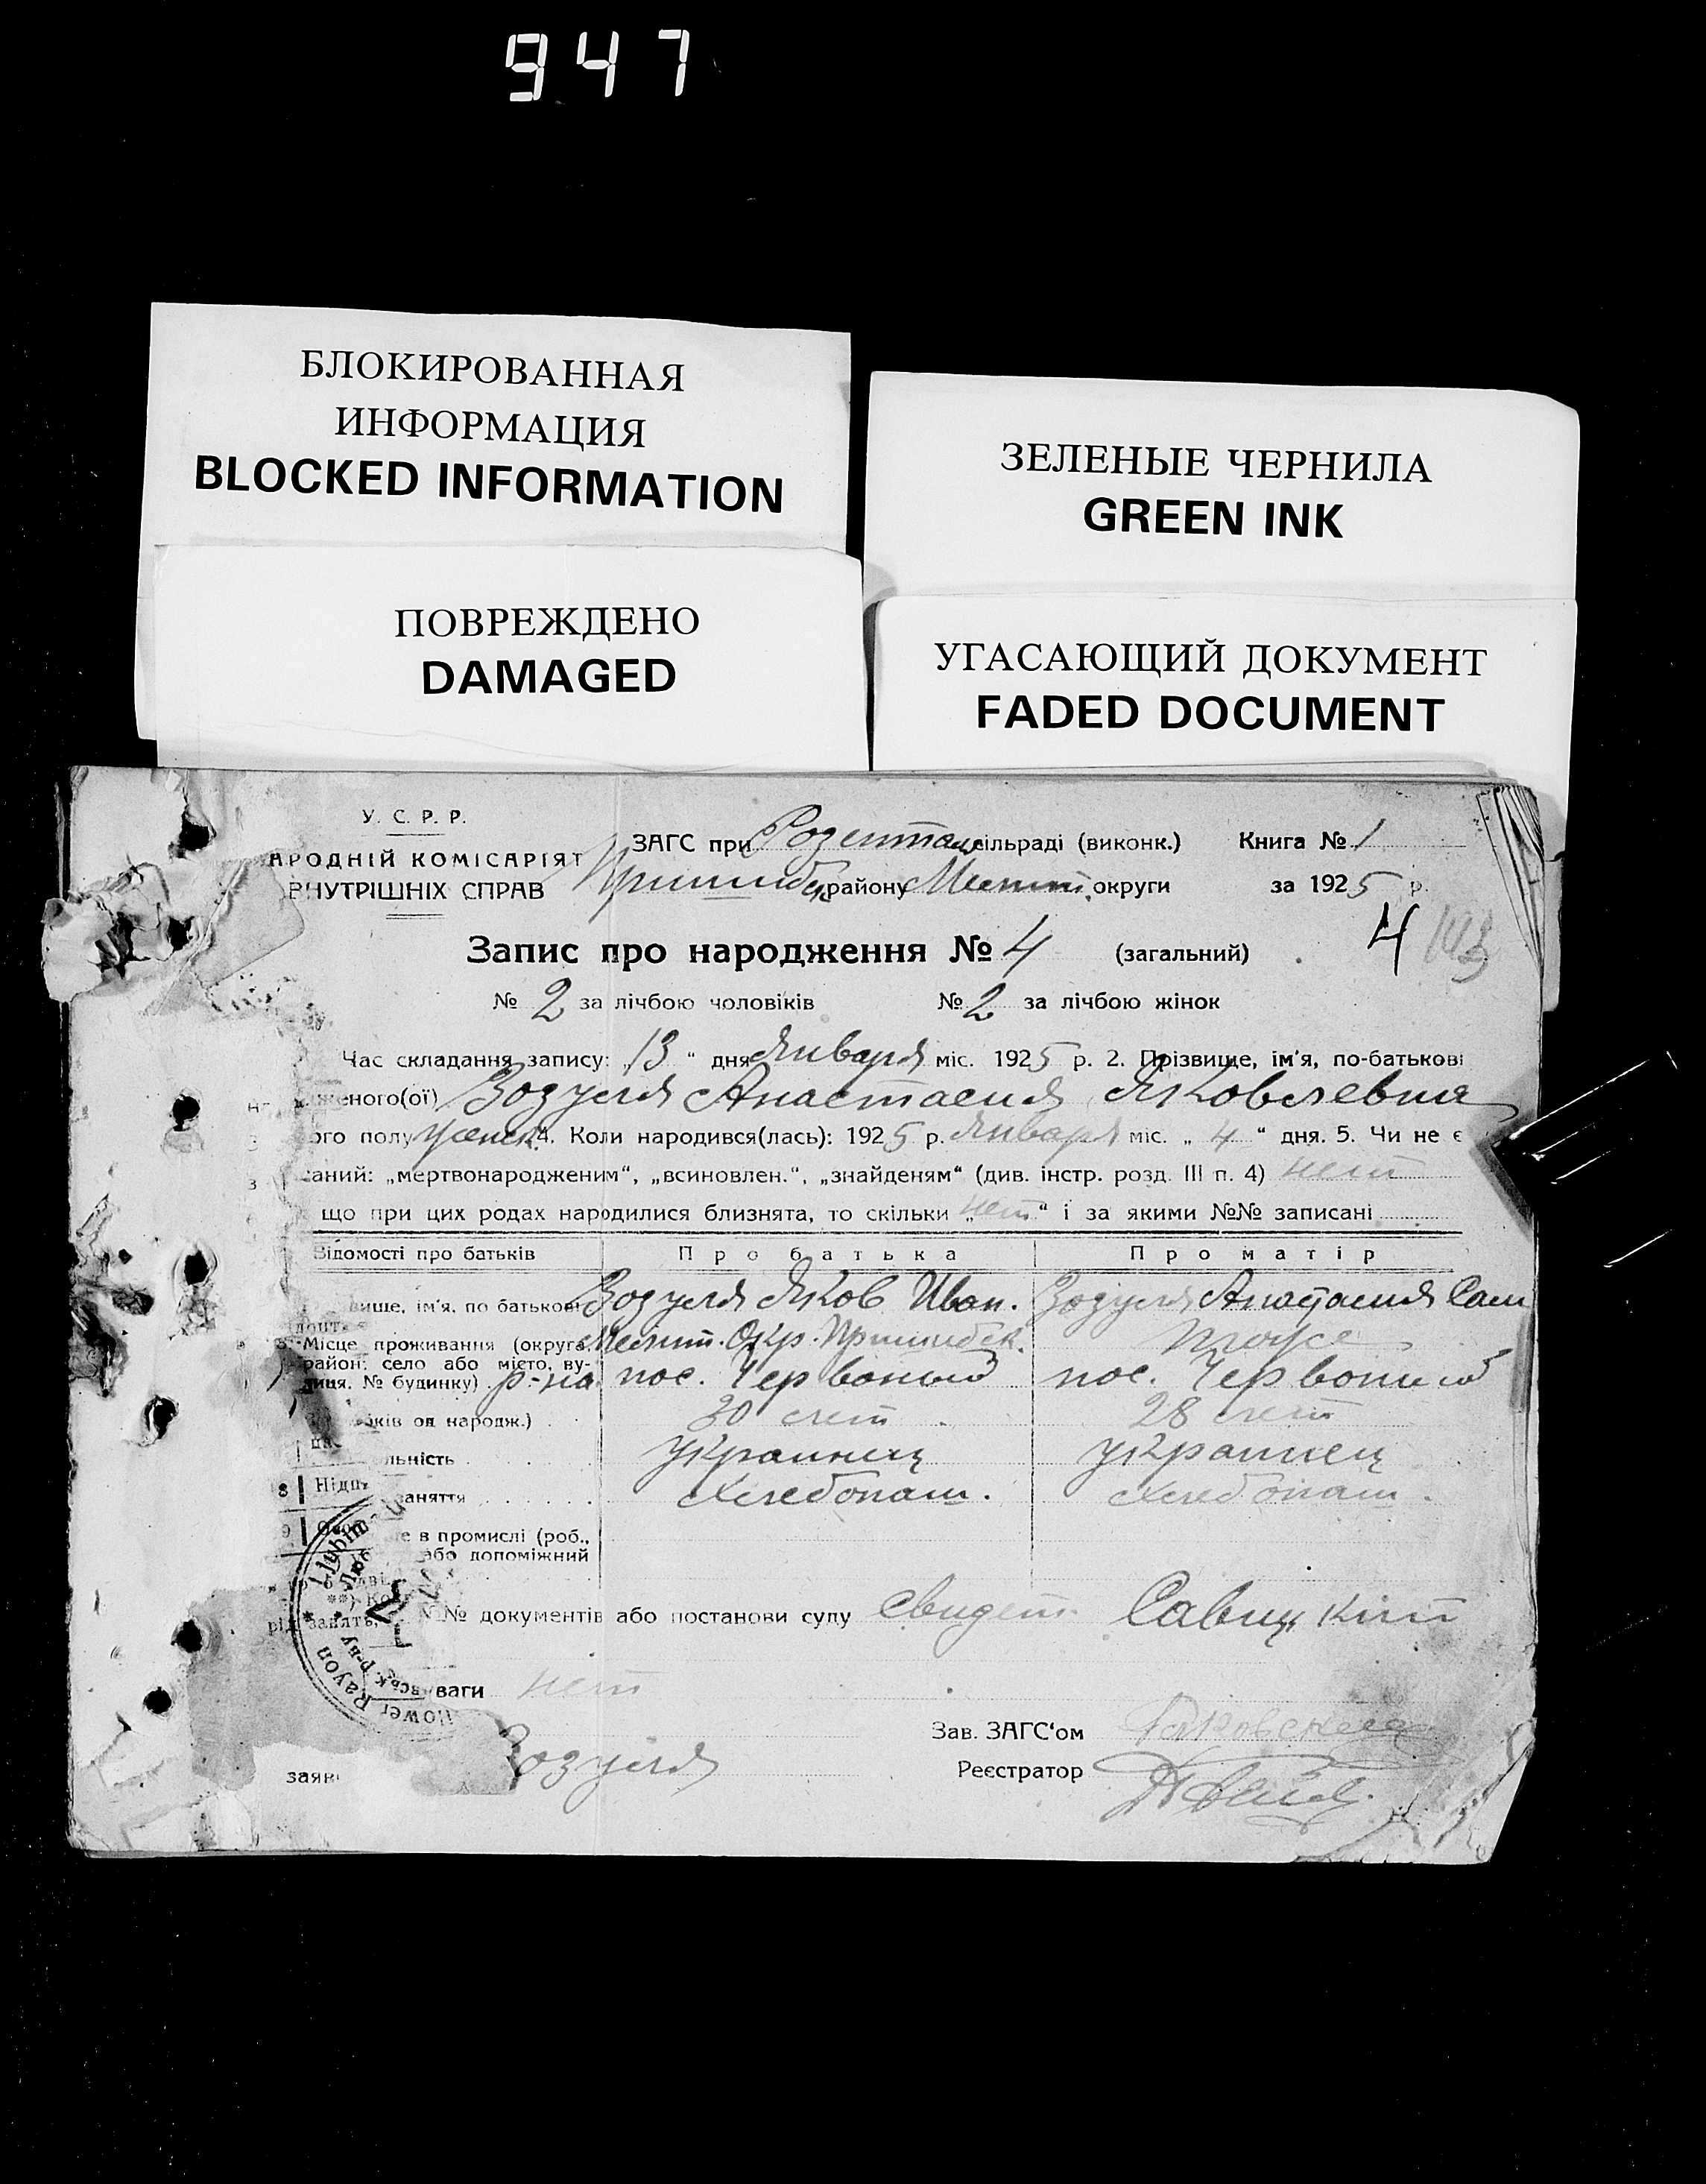 947
БЛОКИРОВАННАЯ
ИНФОРМАЦИЯ
BLOCKED INFORMATION
ЗЕЛЕНЫЕ ЧЕРНИЛА
GREEN INK
ПОВРЕЖДЕНО
DAMAGED
УГАСАЮЩИЙ ДОКУМЕНТ
FADED DOCUMENT
У. С. Р. Р.
АРОДНІЙ КОМІСАРІЯТ
ВНУТРІШНІХ СПРАВ
ЗАГС при сільраді (виконк.) Книга № 1
району округи за 1925 р.
Запис про народження № 4 (загальний) 4
№ 2 за лічбою чоловіків № 2 за лічбою жінок
Час складання запису: „13“ дня Января міс. 1925 р. 2. Прізвище, ім'я, по-батькові
женого(ої) Зозуля Анастасия Яковлевна
ого полу женск. 4. Коли народився(лась): 1925 р. Января міс. „4“ дня. 5. Чи не є
саний: „мертвонародженим“, „всиновлен.“, „знайденям“ (див. інстр. розд. III п. 4) нет
що при цих родах народилися близнята, то скільки „нет“ і за якими №№ записані
Відомості про батьків Про батька Про матір
вище, ім'я, по батькові Зозуля Яков Иван. Зозуля Анастасия Сам
Місце проживання (округа, Мелит. Окр. Пришибск. тоже
район, село або місто, ву-
лиця, № будинку) р-на пос. Червоный пос. Червоный
ків од народж.) 30 лет 28 лет
льність украинец украинец
аняття Хлебопаш. Хлебопаш.
е в промислі (роб.,
або допоміжний
№№ документів або постанови суду Свидет.
ваги нет
Зав. ЗАГС'ом
заяв Зозуля Реєстратор